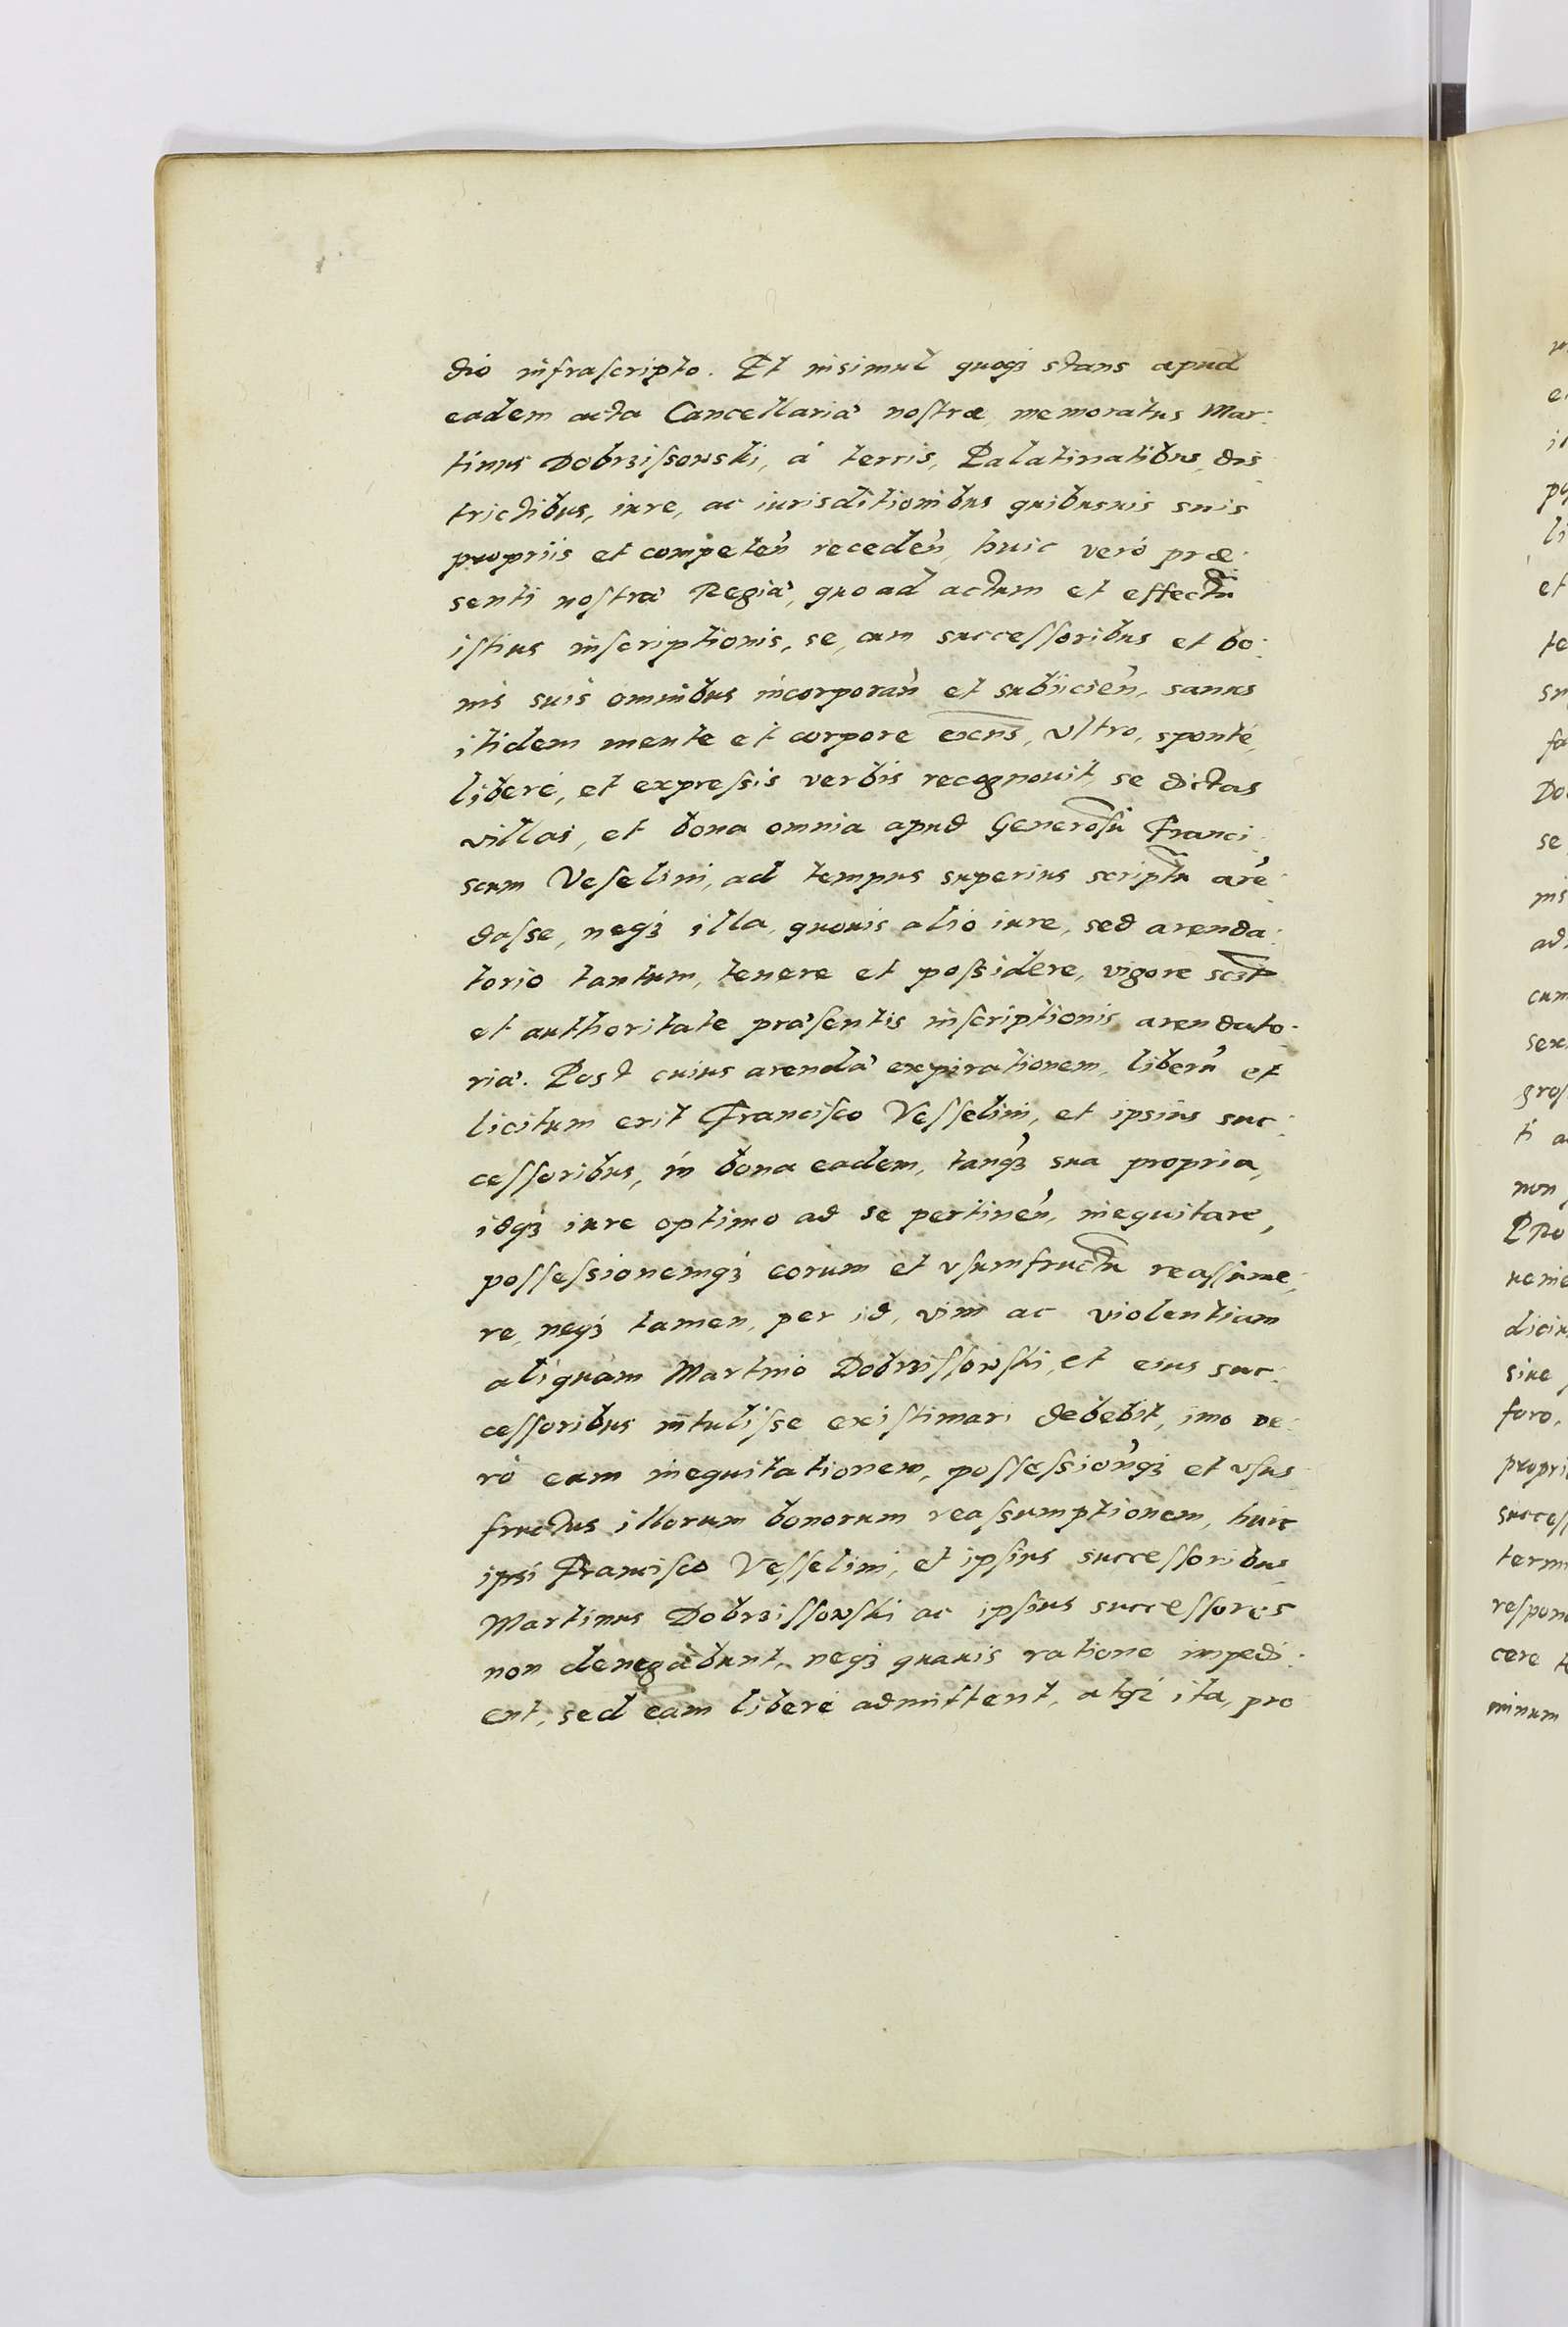 dio infrascripto. Et insimul quoq3 stans apud
eadem acta Cancellariæ nostræ, memoratus Mar:
tinus Dobrzissowski, á terris, Palatinatibus, dis:
trictibus, iure, ac iurisditionibus quibusuis suis
propriis et competen̄ receden̄ huic veró præ:
senti nostræ Regiæ, quo ad actum et effectū
istius inscriptionis, se, cum successoribus et bo:
nis suis omnibus incorporan̄ et subiicien̄, sanus
itidem mente et corpore exēns, vltro, sponté,
liberé, et expressis verbis recognouit, se dictas
villas, et bona omnia apud Generosū Franci:
scum Veselini, ad tempus superius scriptū arē:
dasse, neq3 illa, quouis alio iure, sed arenda:
torio tantum, tenere et possidere, vigore sc3t
et authoritate præsentis inscriptionis arendato:
riæ. Post cuius arendæ expirationem, liberū et
licitum erit Francisco Vesselini, et ipsius suc:
cessoribus, in bona eadem, tanq3 sua propria,
idq3 iure optimo ad se pertinen̄, inequitare,
possessionemq3 eorum et vsumfructū reassume:
re, neq3 tamen, per id, vim ac violentiam
aliquam Martino Dobrzissowski, et eius suc:
cessoribus intulisse existimari debebit, imo ve:
ró eam inequitationem, possession̄q3 et vsus:
fructus illorum bonorum reassumptionem, huic
ipsi Francisco Vesselini, et ipsius successoribus
Martinus Dobrzissowski ac ipsius successores
non denegabunt, neq3 quauis ratione impedi:
ent, sed eam liberé admittent, atq3 ita, pro